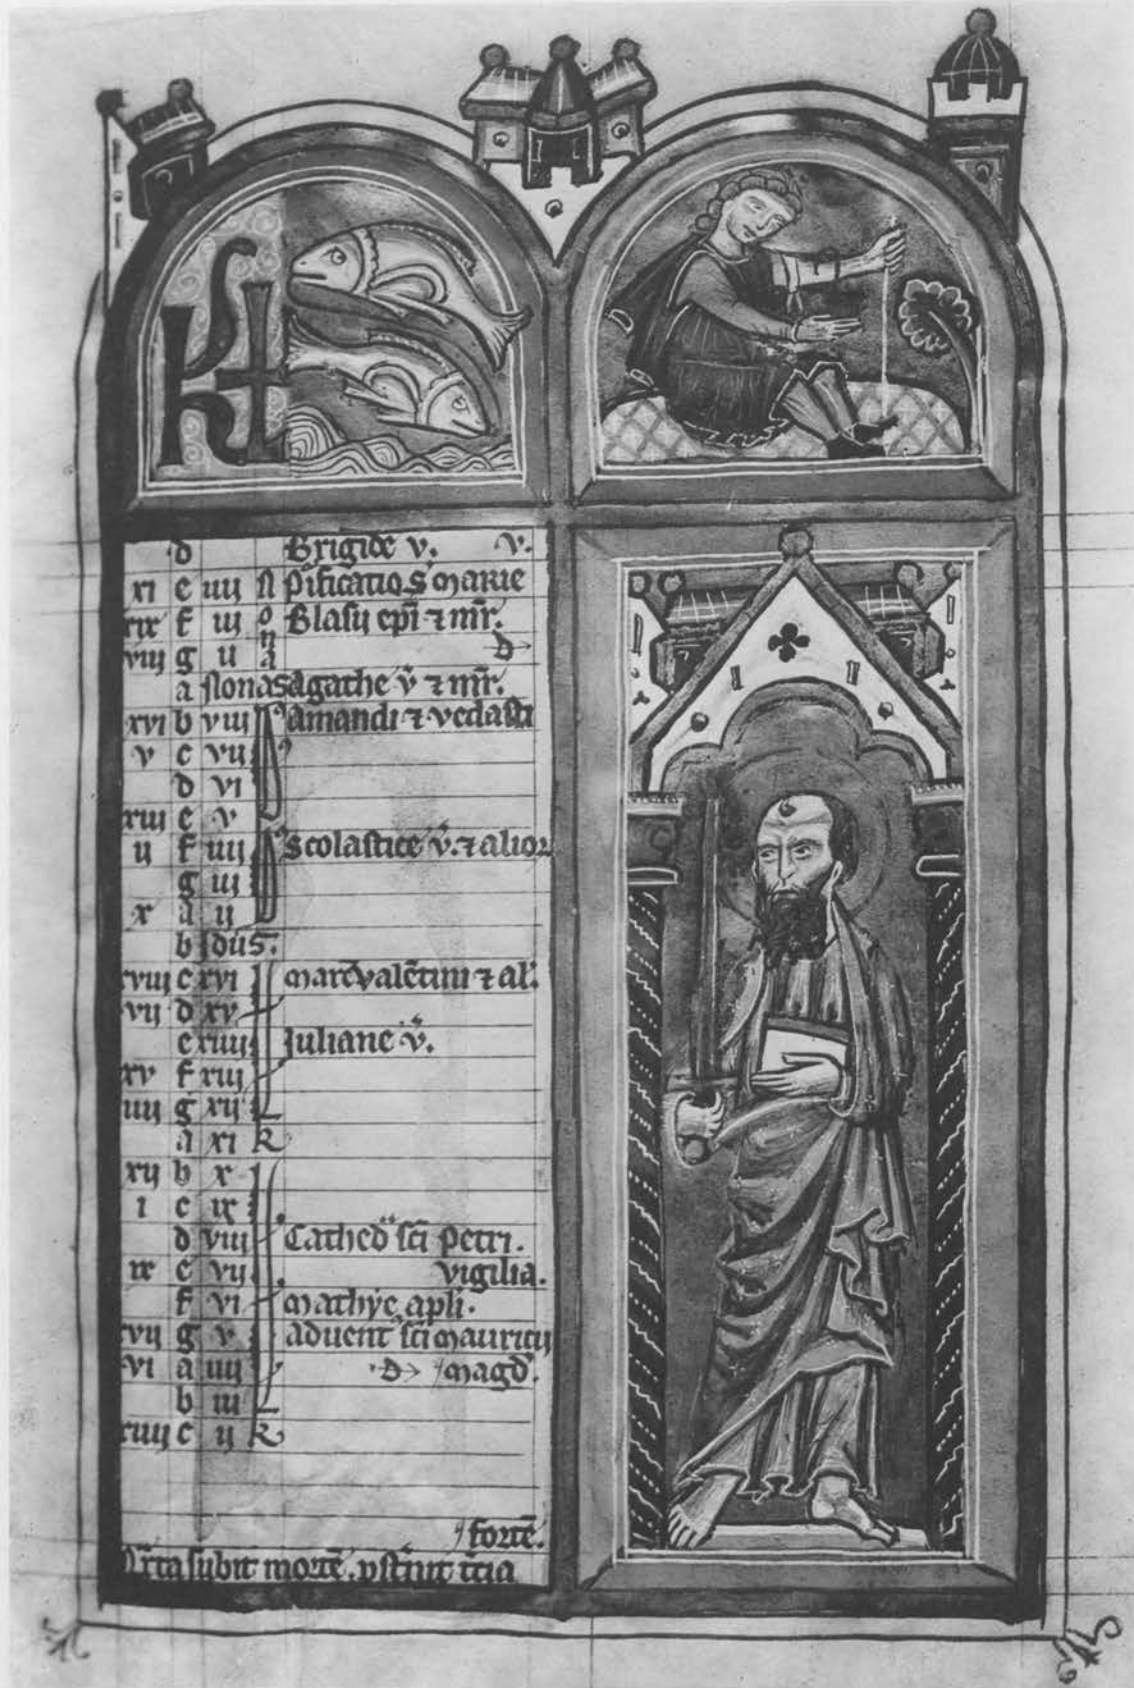 KL
d Brigide v. v.
xi e iiij N p̄ificatio S marie
xix f iij o Blasij ep̄i ⁊ mr̄.
viij g ij n a D
a Nonas Agathe v̄ ⁊ mr̄.
xvi b viij Amandi ⁊ vedasti
v c vij
d vi
xiij e v
ij f iiij Scolastice v̄. ⁊ alior
g iij
x a ij
b Idus.
xviij c xvi valētini ⁊ al.
vij d xv
e xiiij Juliane v̄.
xv f xiij
iiij g xij
a xi k
xij b x
i c ix
d viij Cathed sc̄i Petri.
ix e vij vigilia.
f vi Mathye apli.
xvij g v advent sc̄i mauricij
vi a iiij D magd.
b iij
xiiij c ij k
fortē.
subit mortē. tc̄ia